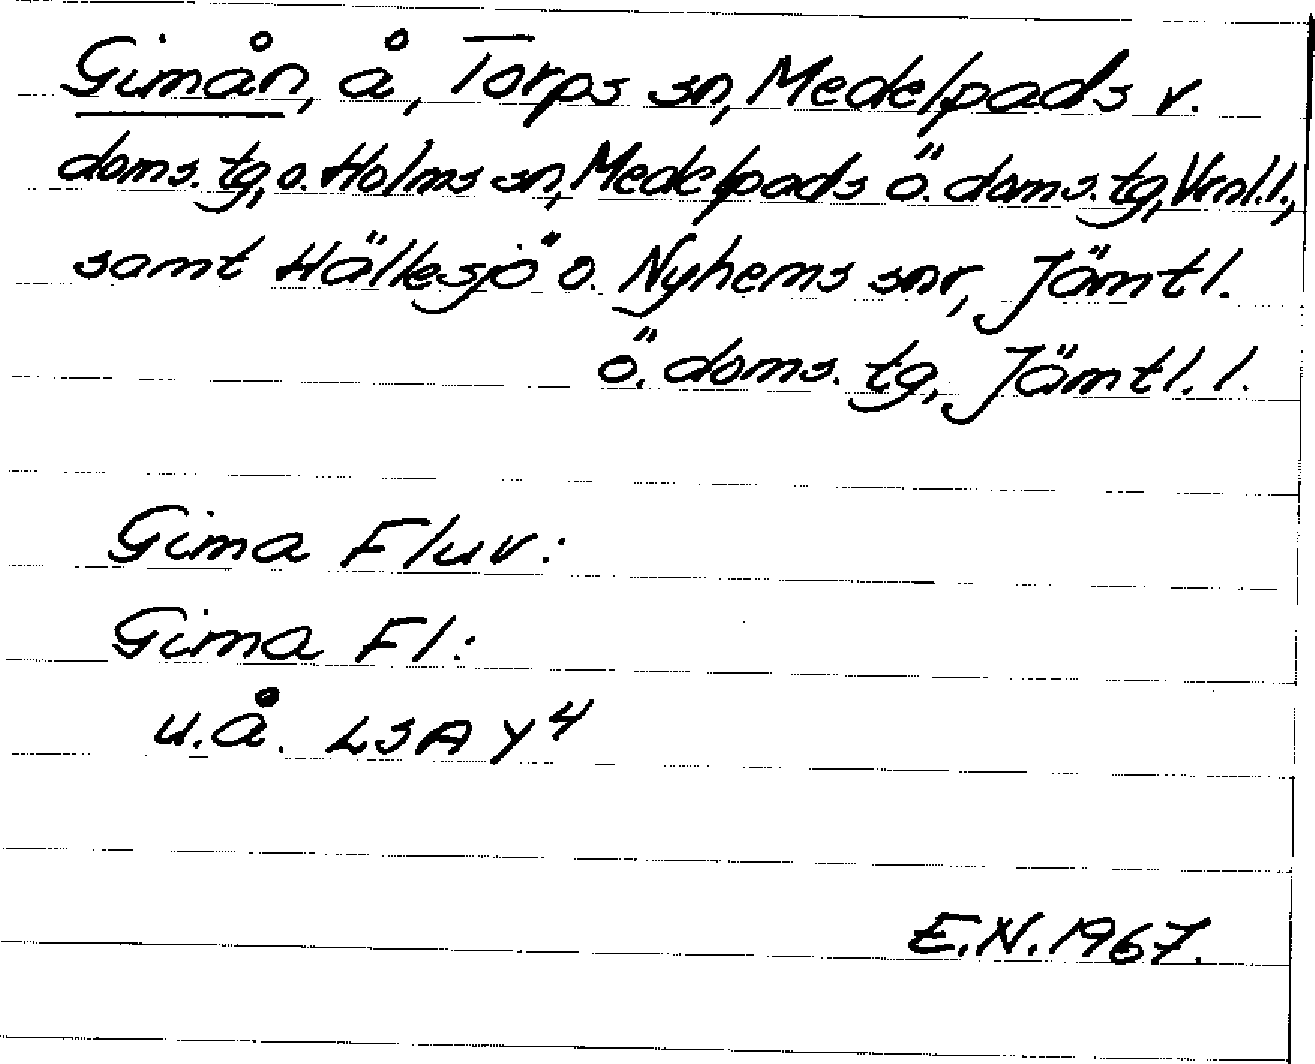 Gimån, å, Torps sn, Medelpads v.
doms. tg, o. Holms sn, Medelpads ö. doms. tg, Vrnl. l.,
samt Hällesjö o. Nyhems snr, Jämtl.
ö. doms. tg, Jämtl. l.
Gima Fluv:
Gima Fl:
u.å. LSA Y4
E.N. 1967.